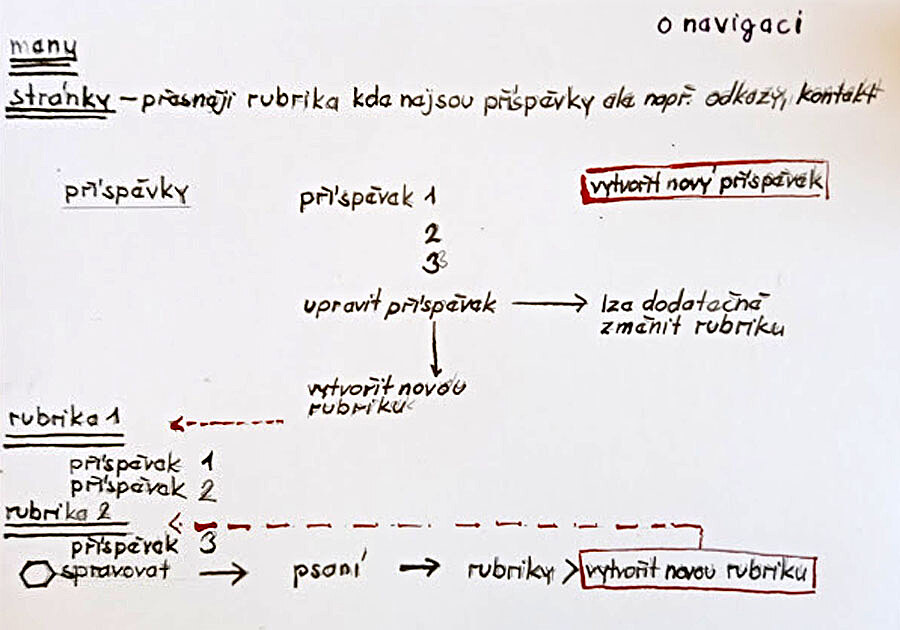 o navigaci
many
stránky – přasnāji rubrika kda najsou příspāvky ala např. odkazy, kontakt
příspāvky
příspāvak 1
vytvořit nový příspāvak
2
3
upravit příspāvak → lza dodatačnā
zmānit rubriku
vytvořit novou
rubriku
rubrika 1
příspāvak 1
příspāvak 2
rubrika 2
příspāvak 3
spravovat → psaní → rubriky > vytvořit novou rubriku